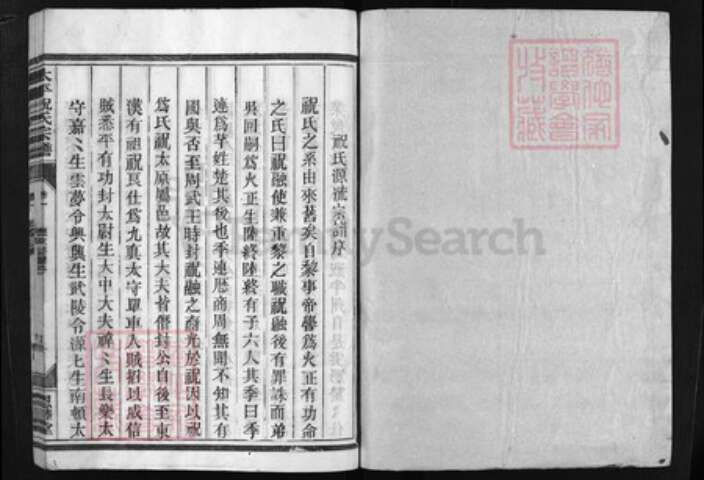 祝氏源流宗譜序
祝氏之系由來舊矣自黎事帝嚳爲火正有功命
之氏曰祝融使兼重黎之職祝融後有罪誅而弟
吳回嗣爲火正生陸終陸終有子六人其季曰季
連爲芊姓楚其後也季連歷商周無聞不知其有
國與否至周武王時封祝融之裔於祝因以祝
爲氏祝太原屬邑故其大夫皆僭封公自後至東
漢有祖祝良仕爲九眞太守單車入賊招以威信
賊悉平有功封太尉生大中大夫 生長樂太
守嘉〻生雲夢令興興生武陵令 上生南頓太
太平祝氏宗譜
卷一
FamilySearch